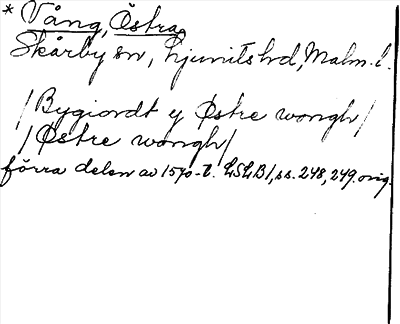 * Vång, Östra
Skårby sn, Ljunits hd, Malm. l.
/Bygiordt y Østre wongh/
/Østre wongh/
förra delen av 1570-t. LSLB1, ss. 248, 249 orig.